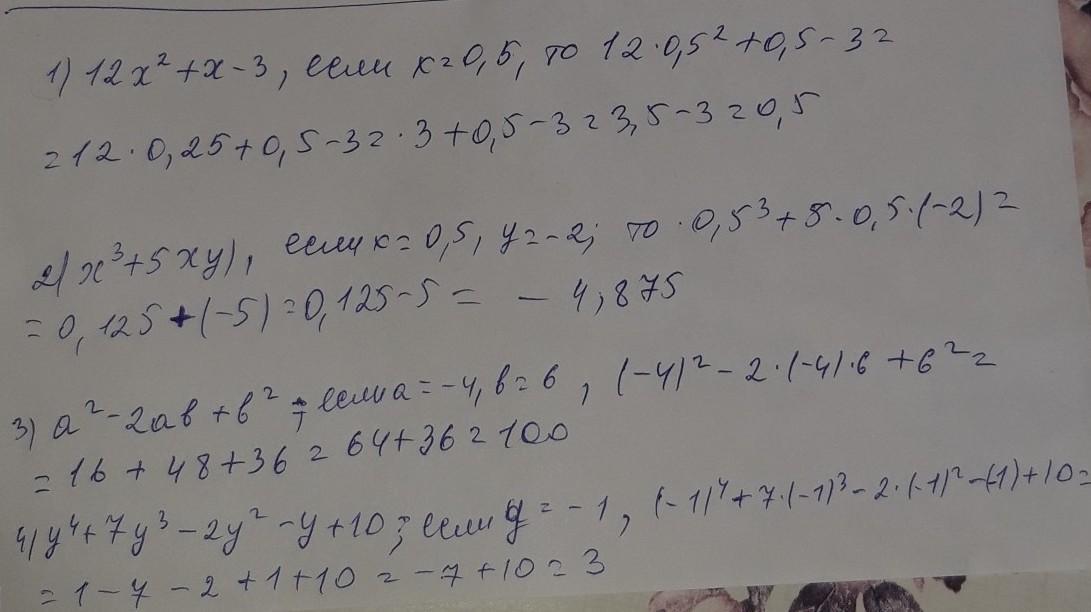 1) 12x² + x - 3, если x = 0,5, то 12 · 0,5² + 0,5 - 3 =
= 12 · 0,25 + 0,5 - 3 = · 3 + 0,5 - 3 = 3,5 - 3 = 0,5
2) x³ + 5xy), если x = 0,5, y = -2; то · 0,5³ + 5 · 0,5 · (-2) =
= 0,125 + (-5) = 0,125 - 5 = - 4,875
3) a² - 2ab + b²; если a = -4, b = 6, (-4)² - 2 · (-4) · 6 + 6² =
= 16 + 48 + 36 = 64 + 36 = 100
4) y⁴ + 7y³ - 2y² - y + 10; если y = -1, (-1)⁴ + 7 · (-1)³ - 2 · (-1)² - (-1) + 10 =
= 1 - 7 - 2 + 1 + 10 = -7 + 10 = 3